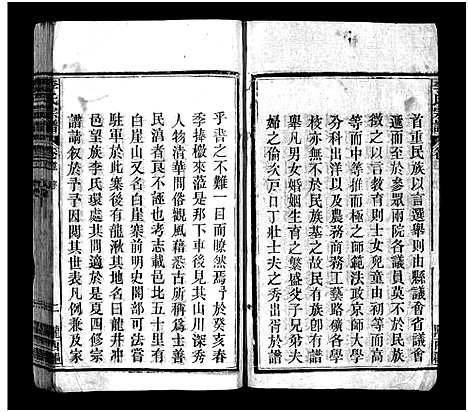 首重民族以言選舉則由縣議會省議會
遞而至於參眾兩院各議員莫不於民族
之以言教育則士女兒童由初等而中
等而高等而極之師範法政京師大學
分科出洋以及農務商務工藝路礦各學
校亦無不於民族基之故民有族卽有譜
舉凡男女婚姻生育之繁盛爻子兄弟夫
婦之倫次戶口丁壯士夫之秀出胥於譜
乎書之不難一目而瞭然焉予於癸亥春
季捧檄來涖是邦下車後見其山川深秀
人物清華問俗觀風藉悉古所稱爲士善
民淯者良不誣也考志載邑北五十里有
白崖山又名白崖寨前明史閣部可法嘗
駐軍於此寨後有龍湫其地名曰龍井冲
邑望族李氏環處其間者也是夏四修宗
譜請叙於予予因閱其世表凡例見其